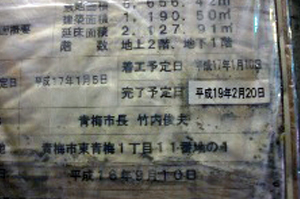 敷地面積 5,656.42㎡
建築面積 1,190.50㎡
概要 延床面積 2,127.91㎡
階数 地上2階、地下1階
定日 平成17年1月5日 着工予定日 平成17年1月10日
完了予定日 平成19年2月20日
青梅市長 竹内俊夫
青梅市東青梅1丁目11番地の4
平成16年9月10日